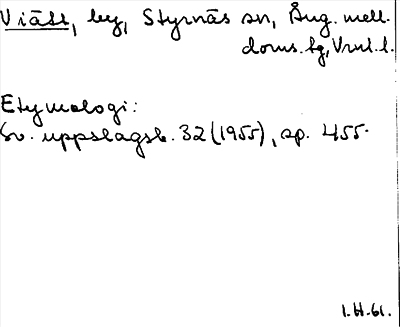 Viätt, by, Styrnäs sn, Ång. mell.
doms. tg, Vrnl. l.
Etymologi:
Sv. uppslagsb. 32 (1955), sp. 455.
1.H.61.